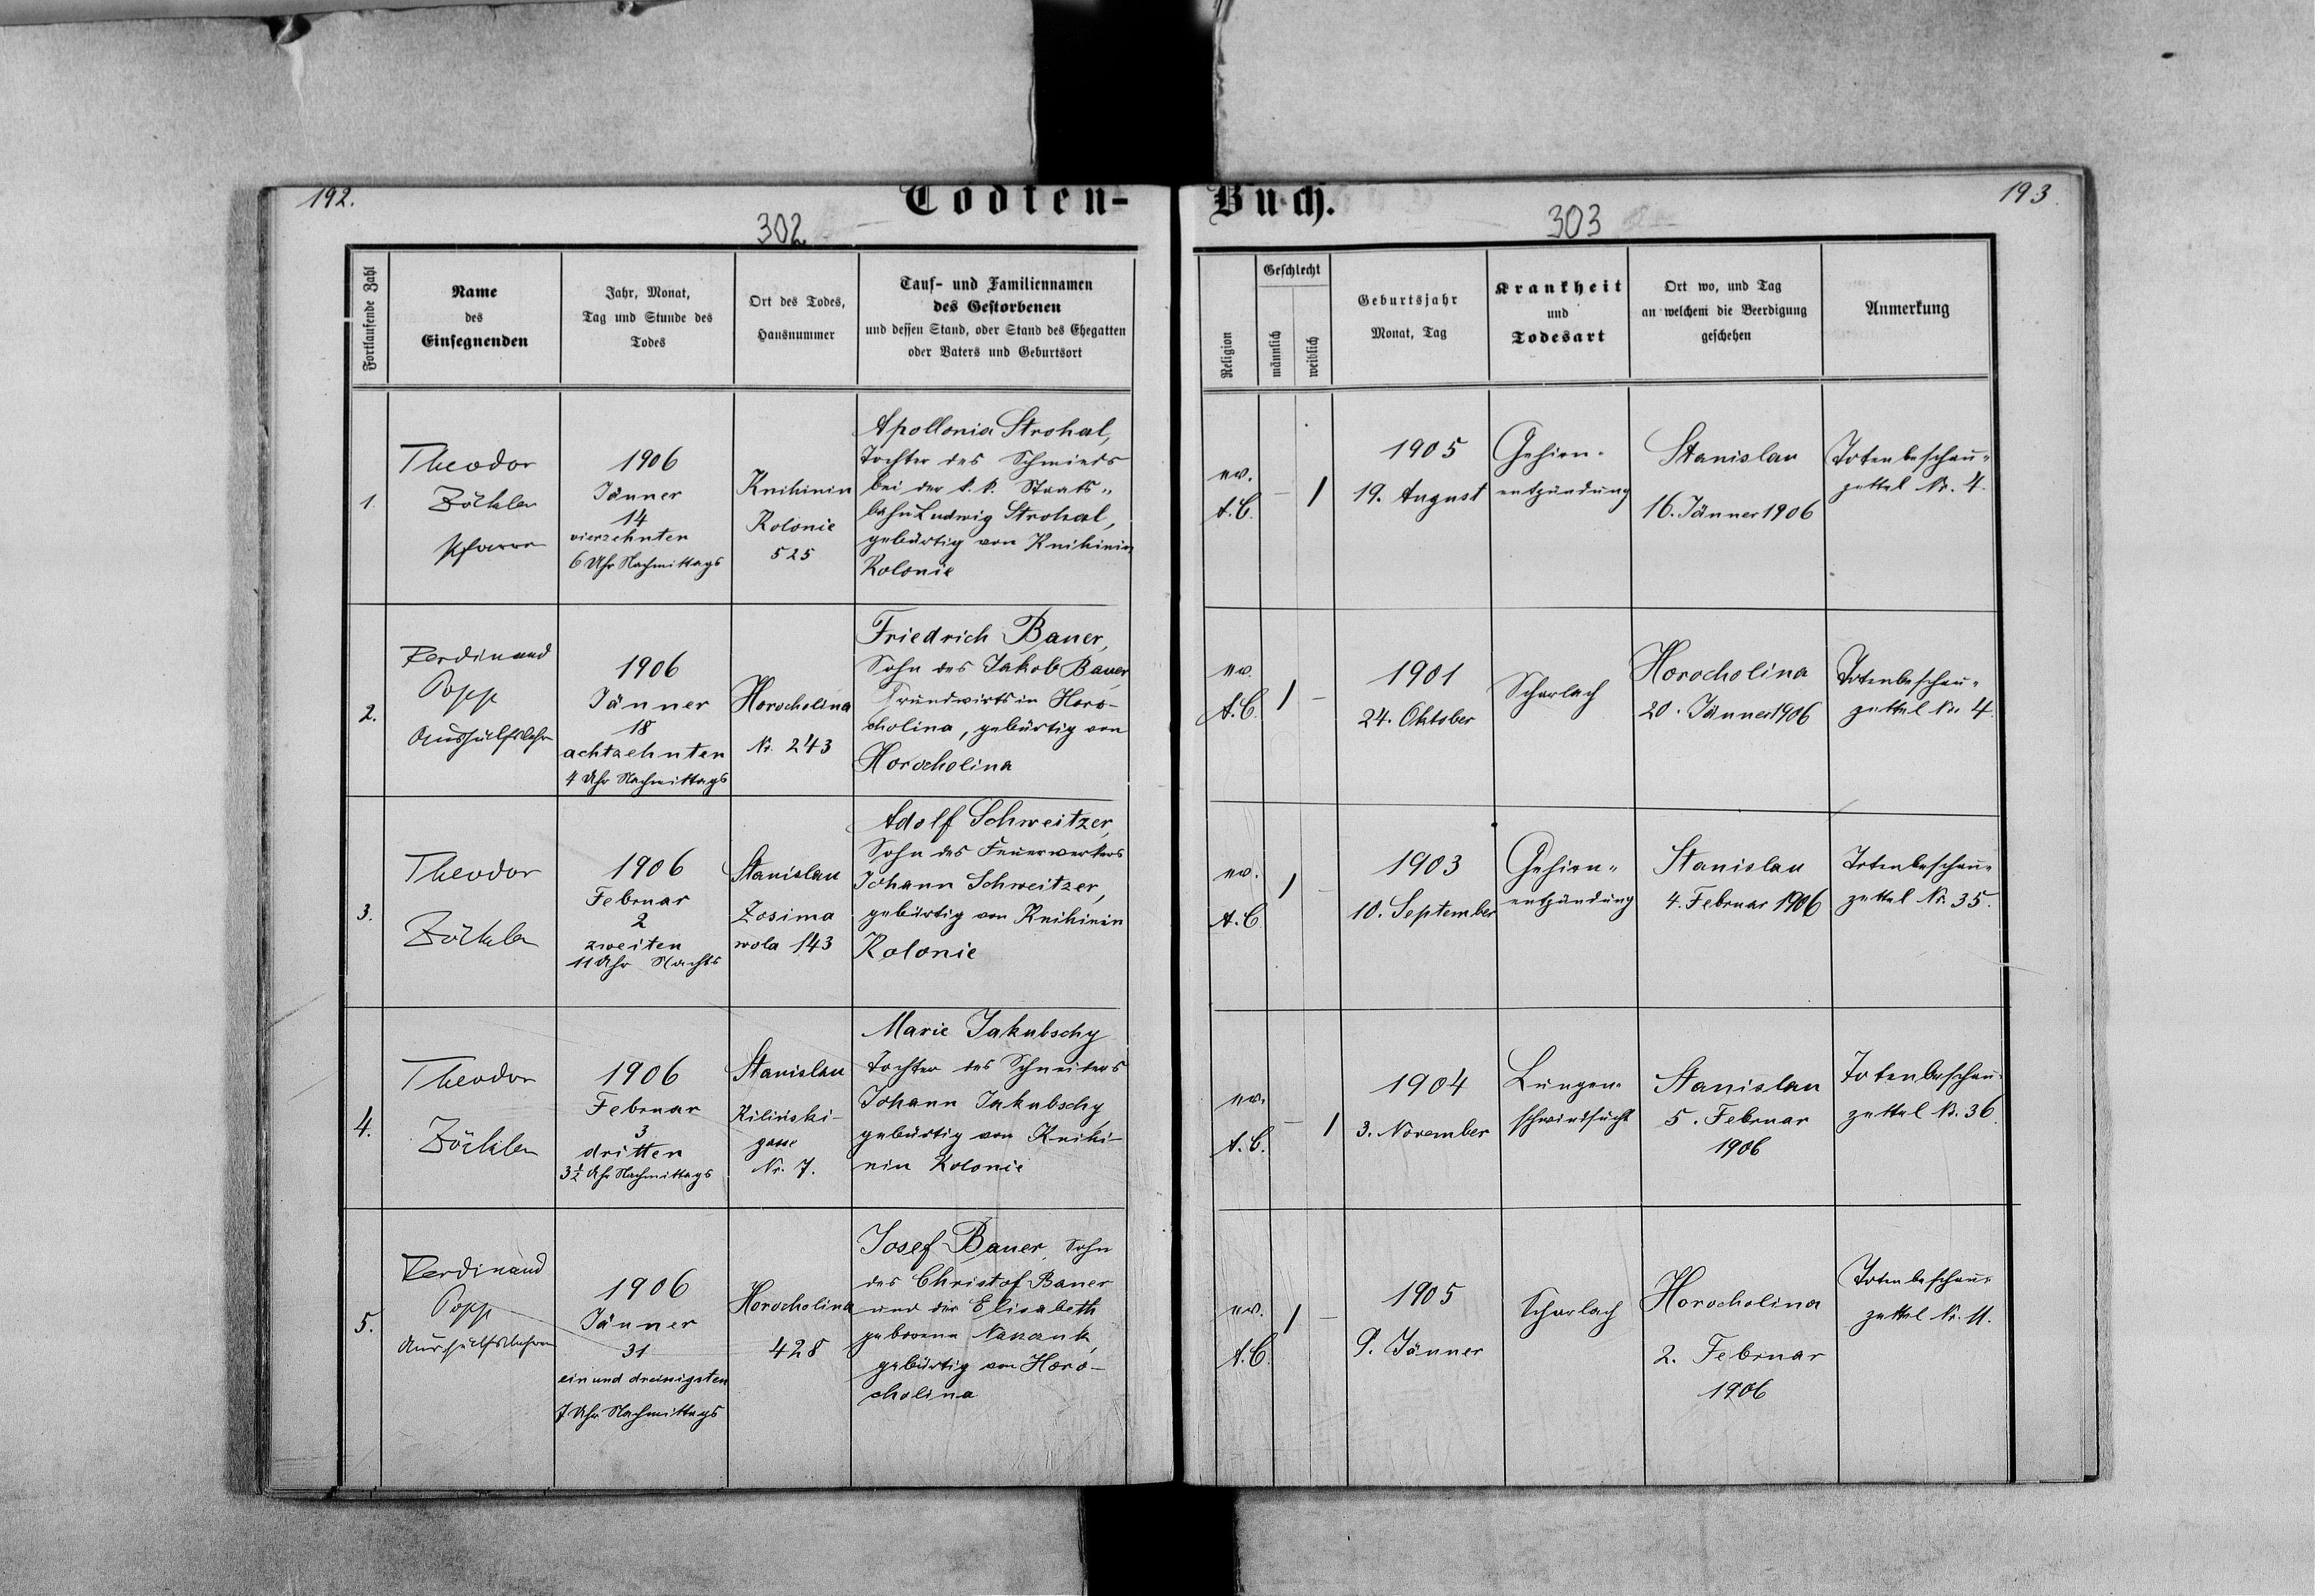 192.
Todten-
302
Fortlaufende Zahl
Name
des
Einsegnenden
Jahr, Monat,
Tag und Stunde des
Todes
Ort des Todes,
Hausnummer
Tauf- und Familiennamen
des Gestorbenen
und dessen Stand, oder Stand des Ehegatten
oder Vaters und Geburtsort
1.
Theodor
Zöckler
Pfarrer
1906
Jänner
14
vierzehnten
6 Uhr Nachmittags
Knihinin
Kolonie
525
Apollonia Strohal,
Tochter des Schmieds
bei der k. k. Staats-
bahn Ludwig Strohal,
gebürtig von Knihinin
Kolonie
2.
Ferdinand
Popp
Aushülfslehr
1906
Jänner
18
achtzehnten
4 Uhr Nachmittags
Horocholina
Nr. 243
Friedrich Bauer,
Sohn des Jakob Bauer
Grundwirts in Horo-
cholina, gebürtig von
Horocholina
3.
Theodor
Zöckler
1906
Februar
2
zweiten
11 Uhr Nachts
Stanislau
Zosima
wola 143
Adolf Schweitzer,
Sohn des Feuerwerkers
Johann Schweitzer,
gebürtig von Knihinin
Kolonie
4.
Theodor
Zöckler
1906
Februar
3
dritten
3½ Uhr Nachmittags
Stanislau
Kiliński-
gasse
Nr. 7.
Marie Jakubschy
Tochter des Schneiders
Johann Jakubschy
gebürtig von Knihi-
nin Kolonie
5.
Ferdinand
Popp
Aushülfslehrer
1906
Jänner
31
ein und dreissigsten
7 Uhr Nachmittags
Horocholina
428
Josef Bauer, Sohn
des Christof Bauer
und der Elisabeth
geborene
gebürtig von Horo-
cholina
Buch.
193
303
Religion
Geschlecht
männlich
weiblich
Geburtsjahr
Monat, Tag
Krankheit
und
Todesart
Ort wo, und Tag
an welchem die Beerdigung
geschehen
Anmerkung
ev.
A.C.
–
1
1905
19. August
Gehirn-
entzündung
Stanislau
16. Jänner 1906
Totenbeschau-
zettel Nr. 4.
ev.
A.C.
1
–
1901
24. Oktober
Scharlach
Horocholina
20. Jänner 1906
Totenbeschau-
zettel Nr. 4
ev.
A.C.
1
–
1903
10. September
Gehirn-
entzündung
Stanislau
4. Februar 1906
Totenbeschau-
zettel Nr. 35.
ev.
A.C.
–
1
1904
3. November
Lungen-
schwindsucht
Stanislau
5. Februar
1906
Totenbeschau-
zettel Nr. 36
ev.
A.C.
1
–
1905
9. Jänner
Scharlach
Horocholina
2. Februar
1906
Totenbeschau-
zettel Nr. 11.